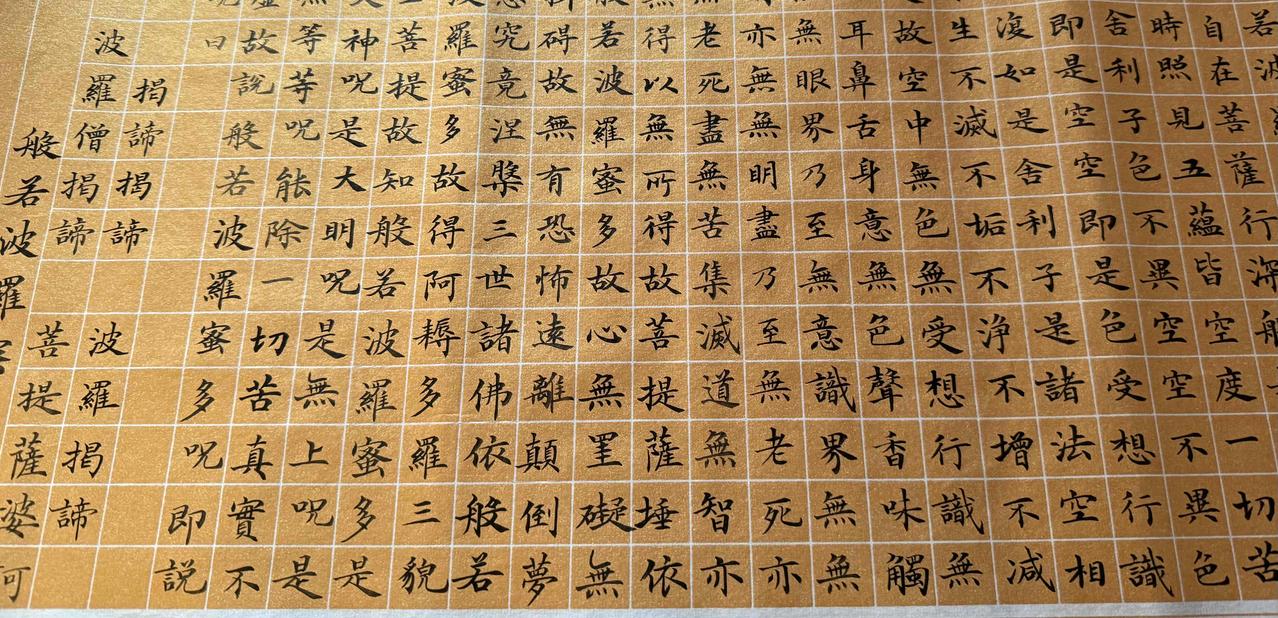 若波
自在菩薩行深般
時照見五蘊皆空度一切苦
舍利子色不異空空不異色
即是空空即是色受想行識
復如是舍利子是諸法空相
生不滅不垢不淨不增不減
故空中無色無受想行識無
耳鼻舌身意無色聲香味觸
無眼界乃至無意識界無無
亦無無明盡乃至無老死亦
老死盡無苦集滅道無智亦
得以無所得故菩提薩埵依
若波羅蜜多故心無罣礙無
碍故無有恐怖遠離顛倒夢
究竟涅槃三世諸佛依般若
羅蜜多故得阿耨多羅三貌
菩提故知般若波羅蜜多是
神咒是大明咒是無上咒是
等等咒能除一切苦真實不
故說般若波羅蜜多咒即説
曰
揭諦揭諦 波羅揭諦
波羅僧揭諦 菩提薩婆
般若波羅